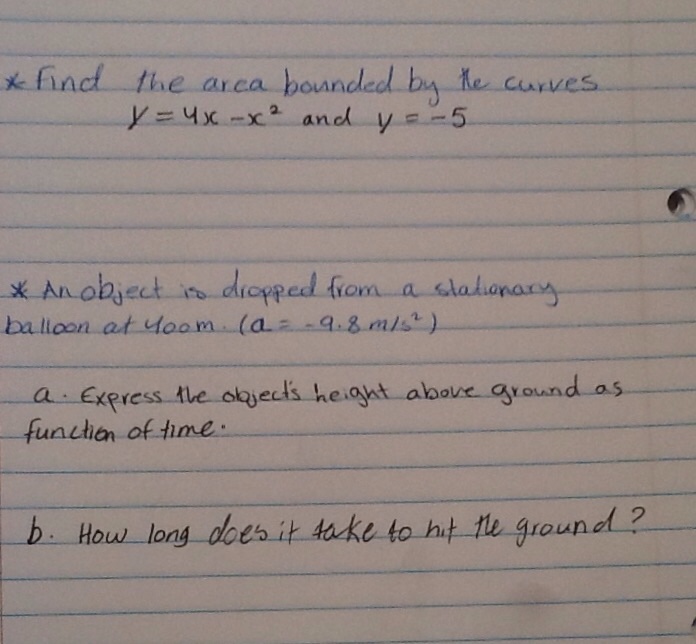 * Find the area bounded by the curves
y = 4x - x² and y = -5
* An object is dropped from a stationary
balloon at 400m. (a = -9.8 m/s²)
a. Express the object's height above ground as
function of time.
b. How long does it take to hit the ground?